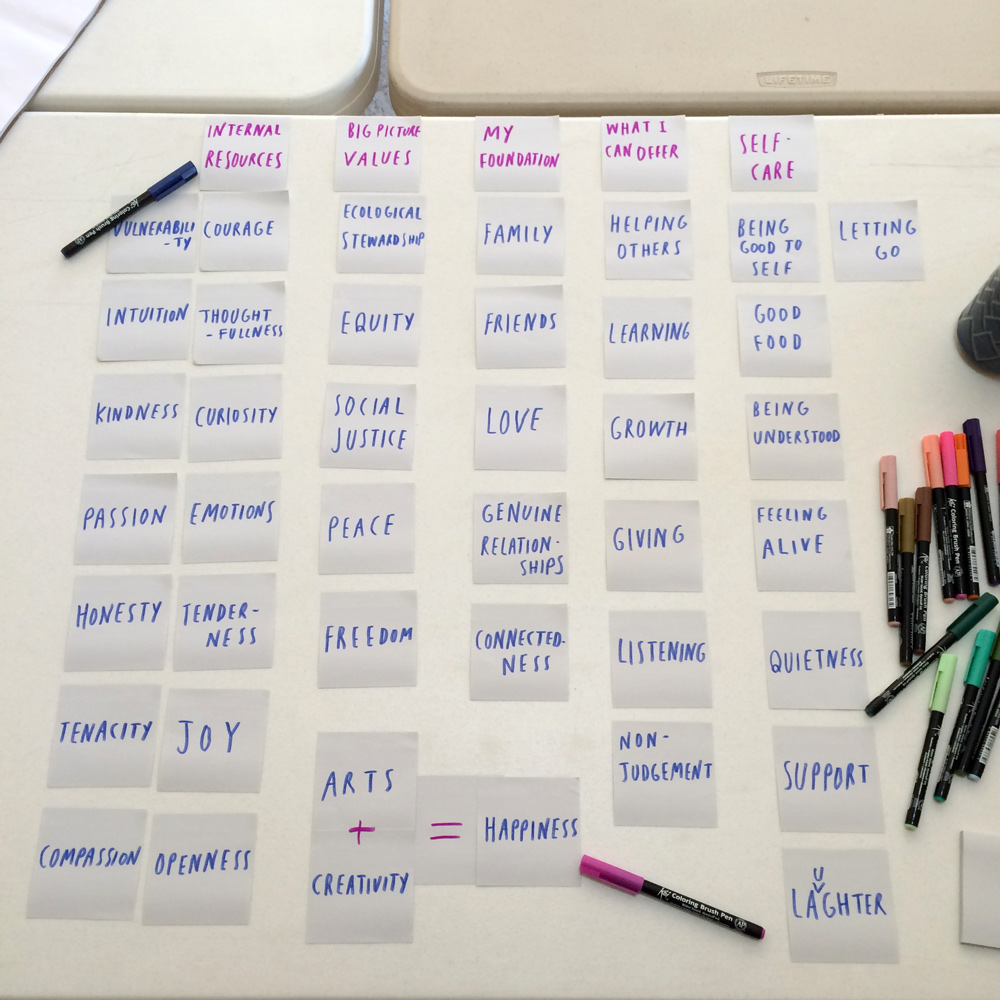 LIFETIME
INTERNAL
RESOURCES
BIG PICTURE
VALUES
MY
FOUNDATION
WHAT I
CAN OFFER
SELF-
CARE
VULNERABILI
-TY
COURAGE
ECOLOGICAL
STEWARDSHIP
FAMILY
HELPING
OTHERS
BEING
GOOD TO
SELF
LETTING
GO
INTUITION
THOUGHT
- FULLNESS
EQUITY
FRIENDS
LEARNING
GOOD
FOOD
KINDNESS
CURIOSITY
SOCIAL
JUSTICE
LOVE
GROWTH
BEING
UNDERSTOOD
PASSION
EMOTIONS
PEACE
GENUINE
RELATION-
SHIPS
GIVING
FEELING
ALIVE
HONESTY
TENDER-
NESS
FREEDOM
CONNECTED-
NESS
LISTENING
QUIETNESS
TENACITY
JOY
NON-
JUDGEMENT
SUPPORT
COMPASSION
OPENNESS
ARTS
+
CREATIVITY
=
HAPPINESS
U
LAGHTER
Coloring Brush Pen
Coloring Brush Pen
Coloring Brush Pen